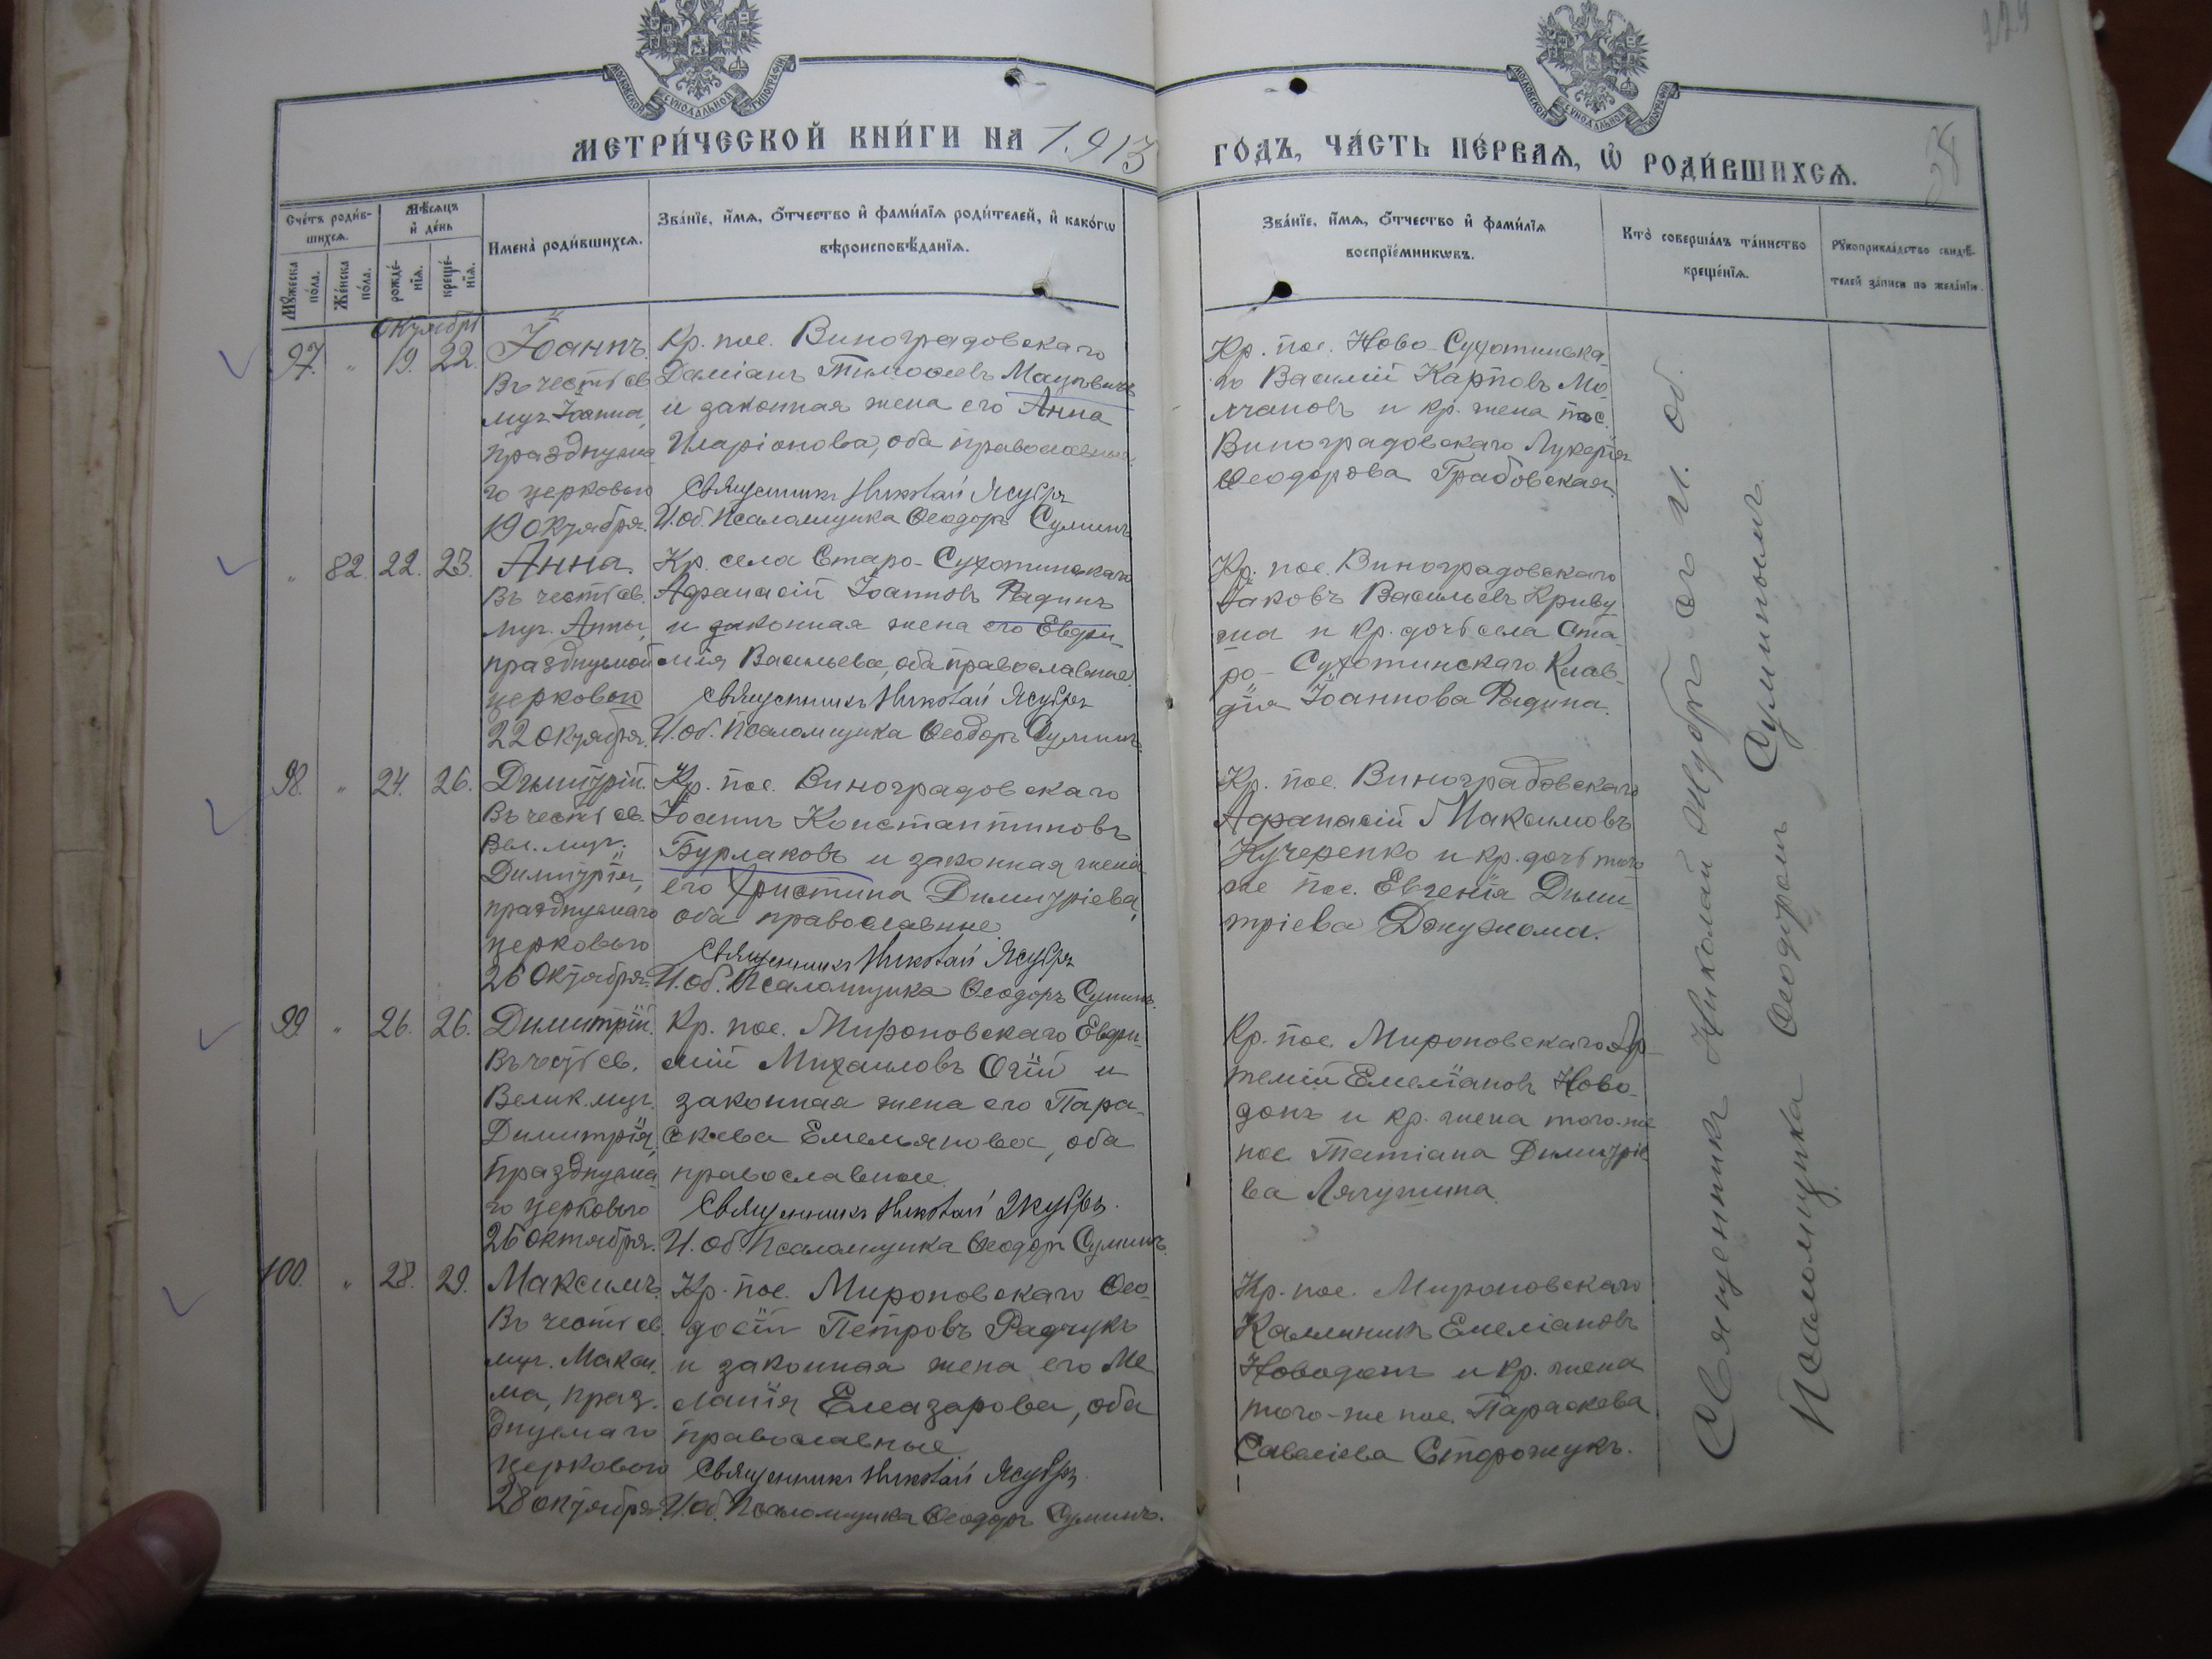 229
МОСКОВСКОЙ СѴНОДАЛЬНОЙ ТИПОГРАФІИ
МОСКОВСКОЙ СѴНОДАЛЬНОЙ ТИПОГРАФІИ
МЕТРИ́ЧЕСКОЙ КНИ́ГИ НА 1913
ГО́ДЪ, ЧА́СТЬ ПЕ́РВАѦ, Ѡ҆ РОДИ́ВШИХСѦ.
38
Сче́тъ роди́в-
шихсѧ.
Мꙋ́жеска
по́ла.
Же́нска
по́ла.
Мѣ́сѧцъ
и҆ де́нь
рожде́-
нїѧ.
креще́-
нїѧ.
Имена̀ роди́вшихсѧ.
Зва́нїе, и҆́мѧ, ѻ҆́тчество и҆ фами́лїѧ роди́телей, и҆ како́гѡ
вѣроисповѣ́данїѧ.
Зва́нїе, и҆́мѧ, ѻ҆́тчество и҆ фами́лїѧ
воспрїе́мникѡвъ.
Кто̀ соверша́лъ та́инство
креще́нїѧ.
Рꙋкоприкла́дство свидѣ́-
телей за́писи по жела́нїю.
Октября
97. " 19. 22. Іоаннъ.
Въ честь св.
муч. Іоанна,
празднуема
го церковью
19 Октября.
Кр. пос. Виноградовскаго
Даміанъ Тимофеевъ
и законная жена его Анна
Иларіонова, оба православные.
Священникъ Николай
И. об. Псаломщика Ѳеодоръ Суминъ
Кр. пос. Ново-Сухотинска
го Василій Карповъ Мо
лчановъ и кр. жена пос.
Виноградовскаго Лукерія
Ѳеодорова Грабовская.
" 82. 22. 23. Анна.
Въ честь св.
муч. Анны,
празднуемой
церковью
22 Октября.
Кр. села Старо-Сухотинскаго
Афанасій Іоанновъ Радинъ
и законная жена его Евфи-
мія Васильева, оба православные.
Священникъ Николай
И. об. Псаломщика Ѳеодоръ Суминъ
Кр. пос. Виноградовскаго
Іаковъ Васильевъ Криву
ша и кр. дочь села Ста
ро-Сухотинскаго Клав-
дія Іоаннова Радина.
98. " 24. 26. Димитрій.
Въ честь св.
Вел. муч.
Димитрія,
празднуемаго
церковью
26 Октября.
Кр. пос. Виноградовскаго
Іоаннъ Константиновъ
Бурлаковъ и законная жена
его Христина Димитріева,
оба православные
Священникъ Николай
И. об. Псаломщика Ѳеодоръ Суминъ.
Кр. пос. Виноградовскаго
Афанасій Максимовъ
Кучеренко и кр. дочь того
же пос. Евгенія Дими-
тріева
99. " 26. 26. Димитрій.
Въ честь св.
Велик. муч.
Димитрія,
празднуема
го церковью
26 октября.
Кр. пос. Мироновскаго Евфи-
мій Михаиловъ Огій и
законная жена его Пара-
скева Емельянова, оба
православные.
Священникъ Николай
И. об. Псаломщика Ѳеодоръ Суминъ.
Кр. пос. Мироновскаго Ар-
темій Емеліановъ Ново-
донъ и кр. жена того-же
пос. Татіана Димитріе
ва
100. " 28. 29. Максимъ.
Въ честь св.
муч. Макси-
ма, праз-
днуемаго
церковью
28 октября.
Кр. пос. Мироновскаго Ѳео-
досій Петровъ Радчукъ
и законная жена его Ме
ланія Елеазарова, оба
православные.
Священникъ Николай
И. об. Псаломщика Ѳеодоръ Суминъ.
Кр. пос. Мироновскаго
Каллиникъ Емеліановъ
Новодонъ и кр. жена
того-же пос. Параскева
Савеліева Сторожукъ.
Священникъ Николай съ И. об.
Псаломщика Ѳеодоромъ Суминымъ.